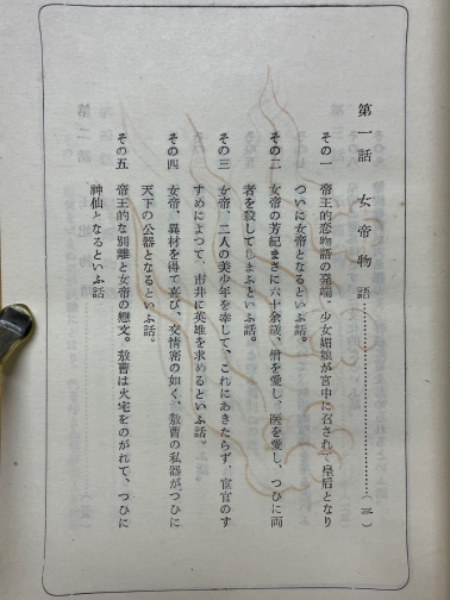 第一話　女帝物語……………………（三）
その一　帝王的恋物語の発端。少女媚娘が宮中に召されて皇后となり
ついに女帝となるといふ話。
その二　女帝の芳紀まさに六十余歳、僧を愛し、医を愛し、つひに両
者を殺してしまふといふ話。
その三　女帝、二人の美少年を幸して、これにあきたらず、宦官のす
すめによつて、市井に英雄を求めるといふ話。
その四　女帝、異材を得て喜び、交情密の如く、敖曹の私器がつひに
天下の公器となるといふ話。
その五　帝王的な別離と女帝の戀文。敖曹は火宅をのがれて、つひに
神仙となるといふ話